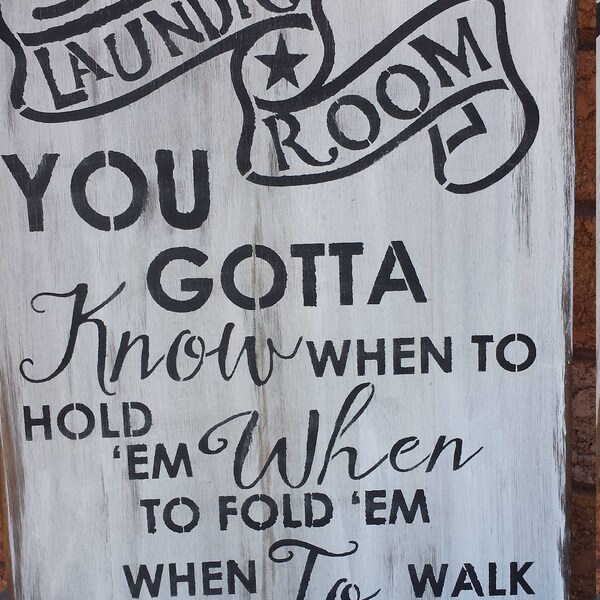 LAUNDRY
ROOM
YOU
GOTTA
Know WHEN TO
HOLD
'EM When
TO FOLD 'EM
WHEN To WALK